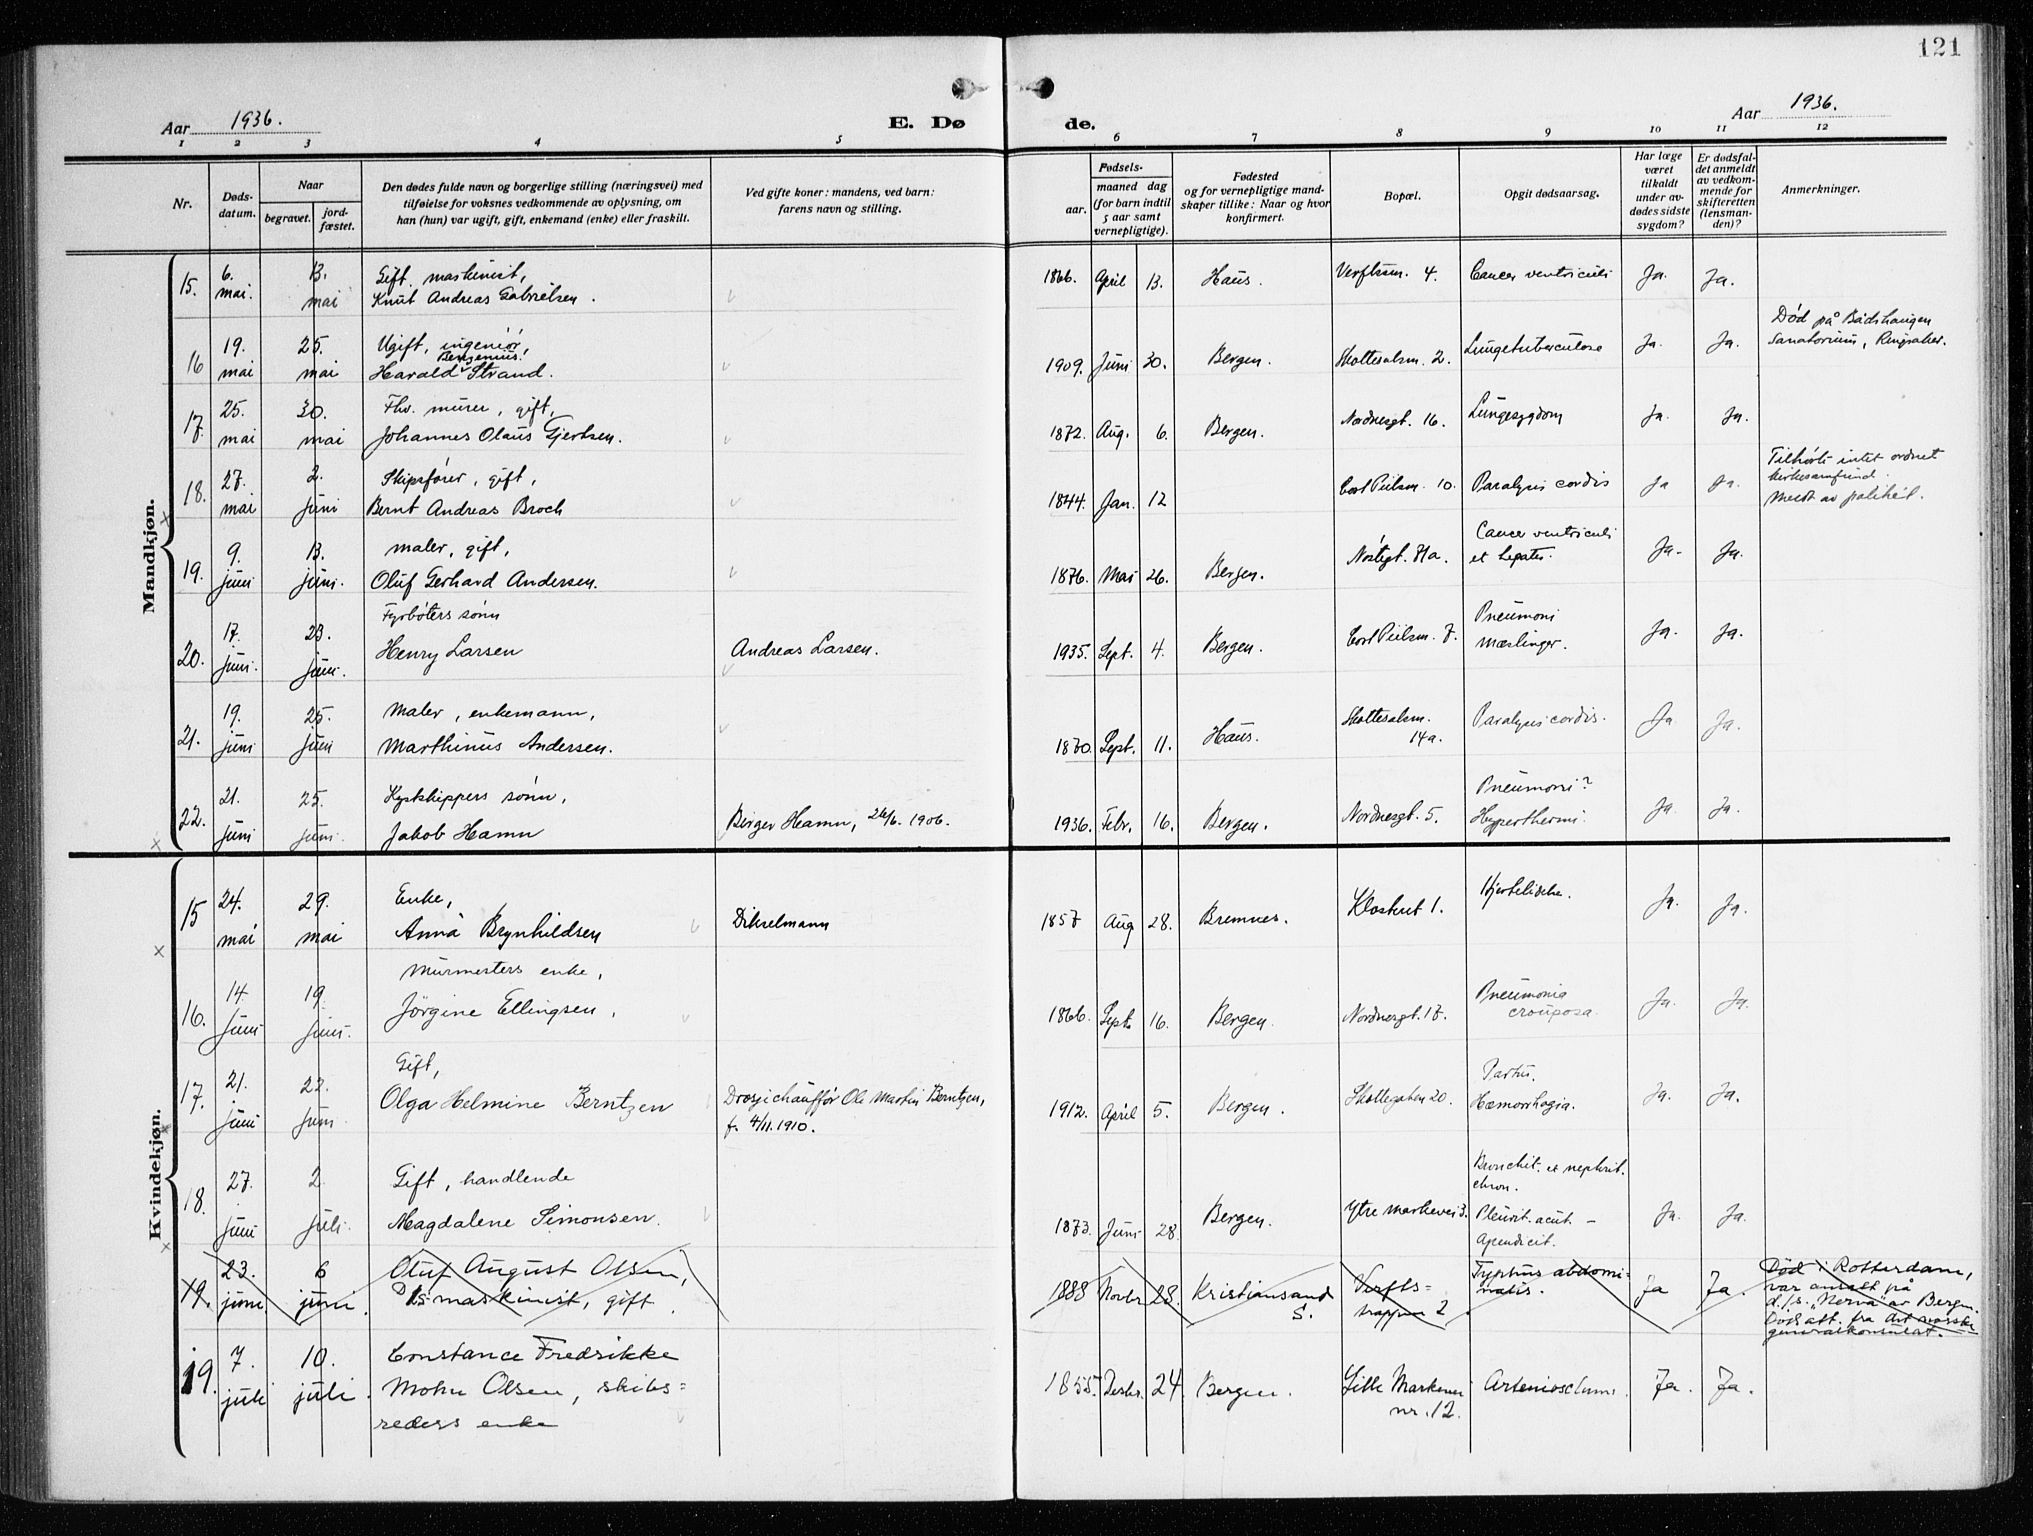 121
Aar 1936.
E. Døde.
Aar 1936.
1 2 3 4 5 6 7 8 9 10 11 12
Nr.
Dødsdatum.
Naar
begravet.
jordfæstet.
Den dødes fulde navn og borgerlige stilling (næringsvei) med
tilføielse for voksnes vedkommende av oplysning, om
han (hun) var ugift, gift, enkemand (enke) eller fraskilt.
Ved gifte koner: mandens, ved barn:
farens navn og stilling.
Fødsels-
aar.
maaned dag
(for barn indtil
5 aar samt
vernepligtige).
Fødested
og for vernepligtige mand-
skaper tillike: Naar og hvor
konfirmert.
Bopæl.
Opgit dødsaarsag.
Har læge
været
tilkaldt
under av-
dødes sidste
sygdom?
Er dødsfal-
det anmeldt
av vedkom-
mende for
skifteretten
(lensman-
den)?
Anmerkninger.
Mandkjøn.
15. 6. mai. 13. mai Gift, maskinist,
Knut Andreas Gabrielsen. 1866. April 13. Haus. Verftsm. 4. Cancer ventriculi Ja. Ja.
16 19. mai 25. mai Ugift, ingeniör,
Benjeminus
Harald Strand. 1909. Juni 30. Bergen. Skottesalsm. 2. Lungetuberculose Ja. Ja. Död på
Sanatorium, Ringsaker.
17. 25. mai 30. mai Fhv. murer, gift,
Johannes Olaus Gjertsen. 1872. Aug. 6. Bergen. Nordnesgt. 16. Lungesygdom Ja. Ja.
18. 27. mai 2. juni Skipsförer, gift,
Bernt Andreas Broch 1844. Jan. 12 Cort Pielsm. 10. Paralysis cordis Ja Ja. Tilhörte intet ordnet
kirkesamfund.
Meldt av politiet.
19. 9. juni 13. juni. maler, gift,
Oluf Gerhard Andersen. 1876. Mai 26. Bergen. Nöstegt. 81a. Cancer ventriculi
et hepatis. Ja. Ja.
20. 17. juni. 23. juni. Fyrböters sönn
Henry Larsen Andreas Larsen. 1935. Sept. 4. Bergen. Cort Pielsm. 7. Pneumoni
mæslinger. Ja. Ja.
21. 19. juni 25. juni Maler, enkemann,
Marthinus Andersen. 1870. Sept. 11. Haus. Skottesalsm.
14a. Paralysis cordis. Ja. Ja.
22. 21. juni 25. juni. Kystskippers sönn,
Jakob Hamn Birger Hamn, 26/6. 1906. 1936. Febr. 16. Bergen. Nordnesgt. 5. Pneumoni?
Hyperthermi. Ja. Ja.
Kvindekjøn.
15 24. mai 29. mai Enke,
Anna Brynhildsen Dikselmann 1857 Aug 28. Bremnes. Klosteret 1. Hjertelidelse. Ja. Ja.
16. 14. juni 19. juni. Murmesters enke,
Jörgine Ellingsen, 1866. Sept. 16. Bergen. Nordnesgt. 17. Pneumonia
crouposa. Ja. Ja.
17. 21. juni 22. juni Gift,
Olga Helmine Berntzen Drosjechaufför Ole Martin Berntzen,
f. 4/11. 1910. 1912. April 5. Bergen. Skottegaten 20. Partus.
Hæmorrhagia. Ja. Ja.
18. 27. juni 2 juli. Gift, handlende
Magdalene Simonsen. 1873. Juni 28. Bergen. Ytre markevei 3. Bronchit. et nephrit.
chron.
Pleurit. acut. –
Apendicit. Ja. Ja.
19. 23. juni. 6 juni. Oluf August Olsen,
maskinist, gift. 1888 Novbr 28. Kristiansand
S. Verfts=
trappen 2 Typhus abdomi=
nalis. Ja Ja. Död i Rotterdam,
var ansatt på
d/s. "Nerva" av Bergen.
Dödsatt. fra det norske
generalkonsulat.
19. 7. juli 10. juli. Constance Fredrikke
Mohn Olsen, skibs=
reders enke 1855. Desbr. 24. Bergen. Lille Markevei
nr. 12. Ja. Ja.